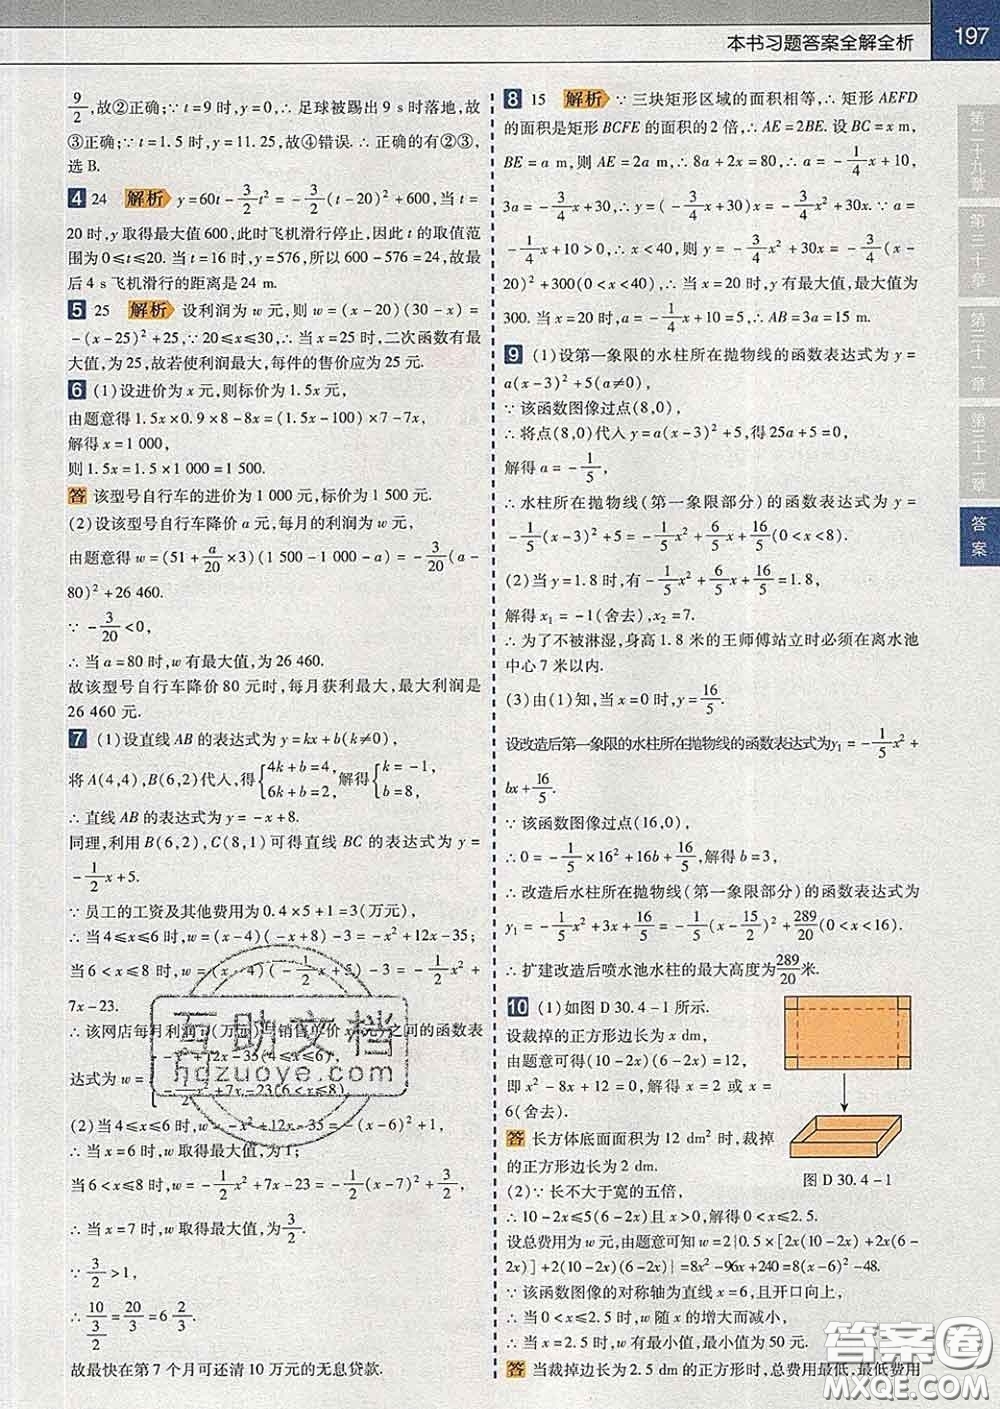 本书习题答案全解全析
197
9/2,故②正确;∵t=9时,y=0,∴足球被踢出9 s时落地,故
③正确;∵t=1.5时,y=11.25,故④错误.∴正确的有②③,
选B.
4 24 解析 y=60t-3/2t²=-3/2(t-20)²+600,当t=
20时,y取得最大值600,此时飞机滑行停止,因此t的取值范
围为0≤t≤20.当t=16时,y=576,所以600-576=24,故最
后4 s飞机滑行的距离是24 m.
5 25 解析 设利润为w元,则w=(x-20)(30-x)=
-(x-25)²+25,∵20≤x≤30,∴当x=25时,二次函数有最
大值,为25,故若使利润最大,每件的售价应为25元.
6 (1)设进价为x元,则标价为1.5x元,
由题意得1.5x×0.9×8-8x=(1.5x-100)×7-7x,
解得x=1 000,
则1.5x=1.5×1 000=1 500.
答 该型号自行车的进价为1 000元,标价为1 500元.
(2)设该型号自行车降价a元,每月的利润为w元,
由题意得w=(51+a/20×3)(1 500-1 000-a)=-3/20(a-
80)²+26 460.
∵-3/20<0,
∴当a=80时,w有最大值,为26 460.
故该型号自行车降价80元时,每月获利最大,最大利润是
26 460元.
7 (1)设直线AB的表达式为y=kx+b(k≠0),
将A(4,4),B(6,2)代入,得{4k+b=4, 6k+b=2,解得{k=-1, b=8,
∴直线AB的表达式为y=-x+8.
同理,利用B(6,2),C(8,1)可得直线BC的表达式为y=
-1/2x+5.
∵员工的工资及其他费用为0.4×5+1=3(万元),
∴当4≤x≤6时,w=(x-4)(-x+8)-3=-x²+12x-35;
当6<x≤8时,w=(x-4)(-1/2x+5)-3=-1/2x²+
7x-23.
∴该网店每月利润w(万元)与销售单价x(元)之间的函数表
达式为w={-x²+12x-35(4≤x≤6), -1/2x²+7x-23(6<x≤8).
(2)当4≤x≤6时,w=-x²+12x-35=-(x-6)²+1,
当x=6时,w取得最大值1;
当6<x≤8时,w=-1/2x²+7x-23=-1/2(x-7)²+3/2,
∴当x=7时,w取得最大值,为3/2.
∵3/2>1,
∴10/(3/2)=20/3=6 2/3,
故最快在第7个月可还清10万元的无息贷款.
8 15 解析 ∵三块矩形区域的面积相等,∴矩形AEFD
的面积是矩形BCFE的面积的2倍,∴AE=2BE.设BC=x m,
BE=a m,则AE=2a m,∴8a+2x=80,∴a=-1/4x+10,
3a=-3/4x+30,∴y=(-3/4x+30)x=-3/4x²+30x.∵a=
-1/4x+10>0,∴x<40,则y=-3/4x²+30x=-3/4(x-
20)²+300(0<x<40),∴当x=20时,y有最大值,最大值为
300.当x=20时,a=-1/4x+10=5,∴AB=3a=15 m.
9 (1)设第一象限的水柱所在抛物线的函数表达式为y=
a(x-3)²+5(a≠0),
∵该函数图像过点(8,0),
∴将点(8,0)代入y=a(x-3)²+5,得25a+5=0,
解得a=-1/5,
∴水柱所在抛物线(第一象限部分)的函数表达式为y=
-1/5(x-3)²+5=-1/5x²+6/5x+16/5(0<x<8).
(2)当y=1.8时,有-1/5x²+6/5x+16/5=1.8,
解得x₁=-1(舍去),x₂=7.
∴为了不被淋湿,身高1.8米的王师傅站立时必须在离水池
中心7米以内.
(3)由(1)知,当x=0时,y=16/5.
设改造后第一象限的水柱所在抛物线的函数表达式为y₁=-1/5x²+
bx+16/5.
∵该函数图像过点(16,0),
∴0=-1/5×16²+16b+16/5,解得b=3,
∴改造后水柱所在抛物线(第一象限部分)的函数表达式为
y₁=-1/5x²+3x+16/5=-1/5(x-15/2)²+289/20(0<x<16).
∴扩建改造后喷水池水柱的最大高度为289/20米.
10 (1)如图D 30.4-1所示.
设裁掉的正方形边长为x dm,
由题意可得(10-2x)(6-2x)=12,
即x²-8x+12=0,解得x=2或x=
6(舍去).
答 长方体底面面积为12 dm²时,裁掉
的正方形边长为2 dm.
图D 30.4-1
(2)∵长不大于宽的五倍,
∴10-2x≤5(6-2x)且x>0,解得0<x≤2.5.
设总费用为w元,由题意可知w=2{0.5×[2x(10-2x)+2x(6-
2x)]+2(10-2x)(6-2x)}=8x²-96x+240=8(x-6)²-48.
∵该函数图像的对称轴为直线x=6,且开口向上,
∴当0<x≤2.5时,w随x的增大而减小,
∴当x=2.5时,w有最小值,最小值为50元.
答 当裁掉边长为2.5 dm的正方形时,总费用最低,最低费用
第二十九章
第三十章
第三十一章
第三十二章
答案
互助文档
hdzuoye.com
答案圈
MXQE.COM